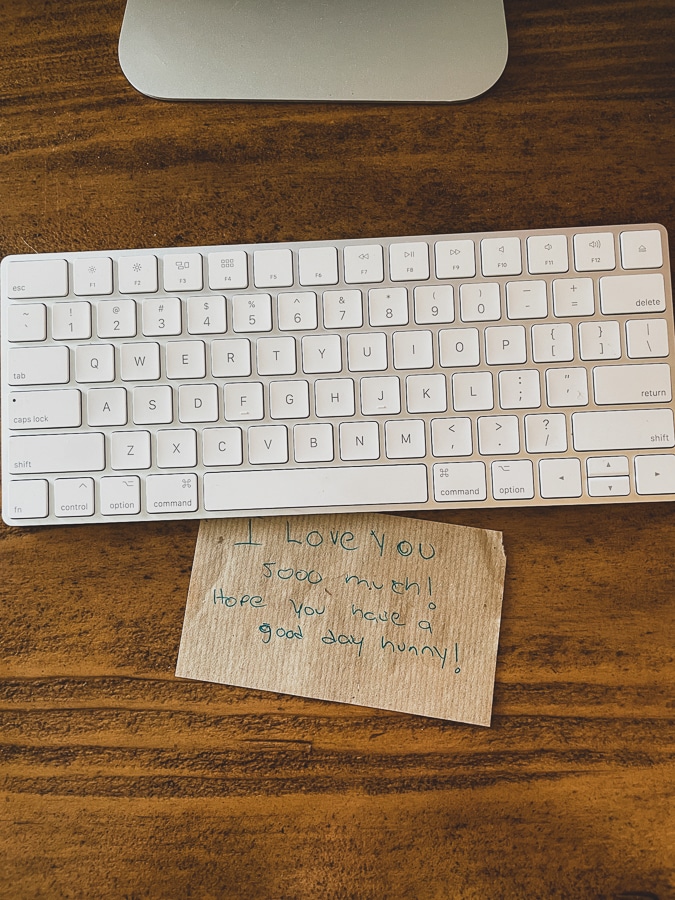 esc F1 F2 F3 F4 F5 F6 F7 F8 F9 F10 F11 F12
~ ! @ # $ % ^ & * ( ) _ +
` 1 2 3 4 5 6 7 8 9 0 - = delete
tab Q W E R T Y U I O P { [ } ] | \
caps lock A S D F G H J K L : ; " ' return
shift Z X C V B N M < , > . ? / shift
fn control option command command option
I Love You
sooo much!
Hope you have a
good day hunny!